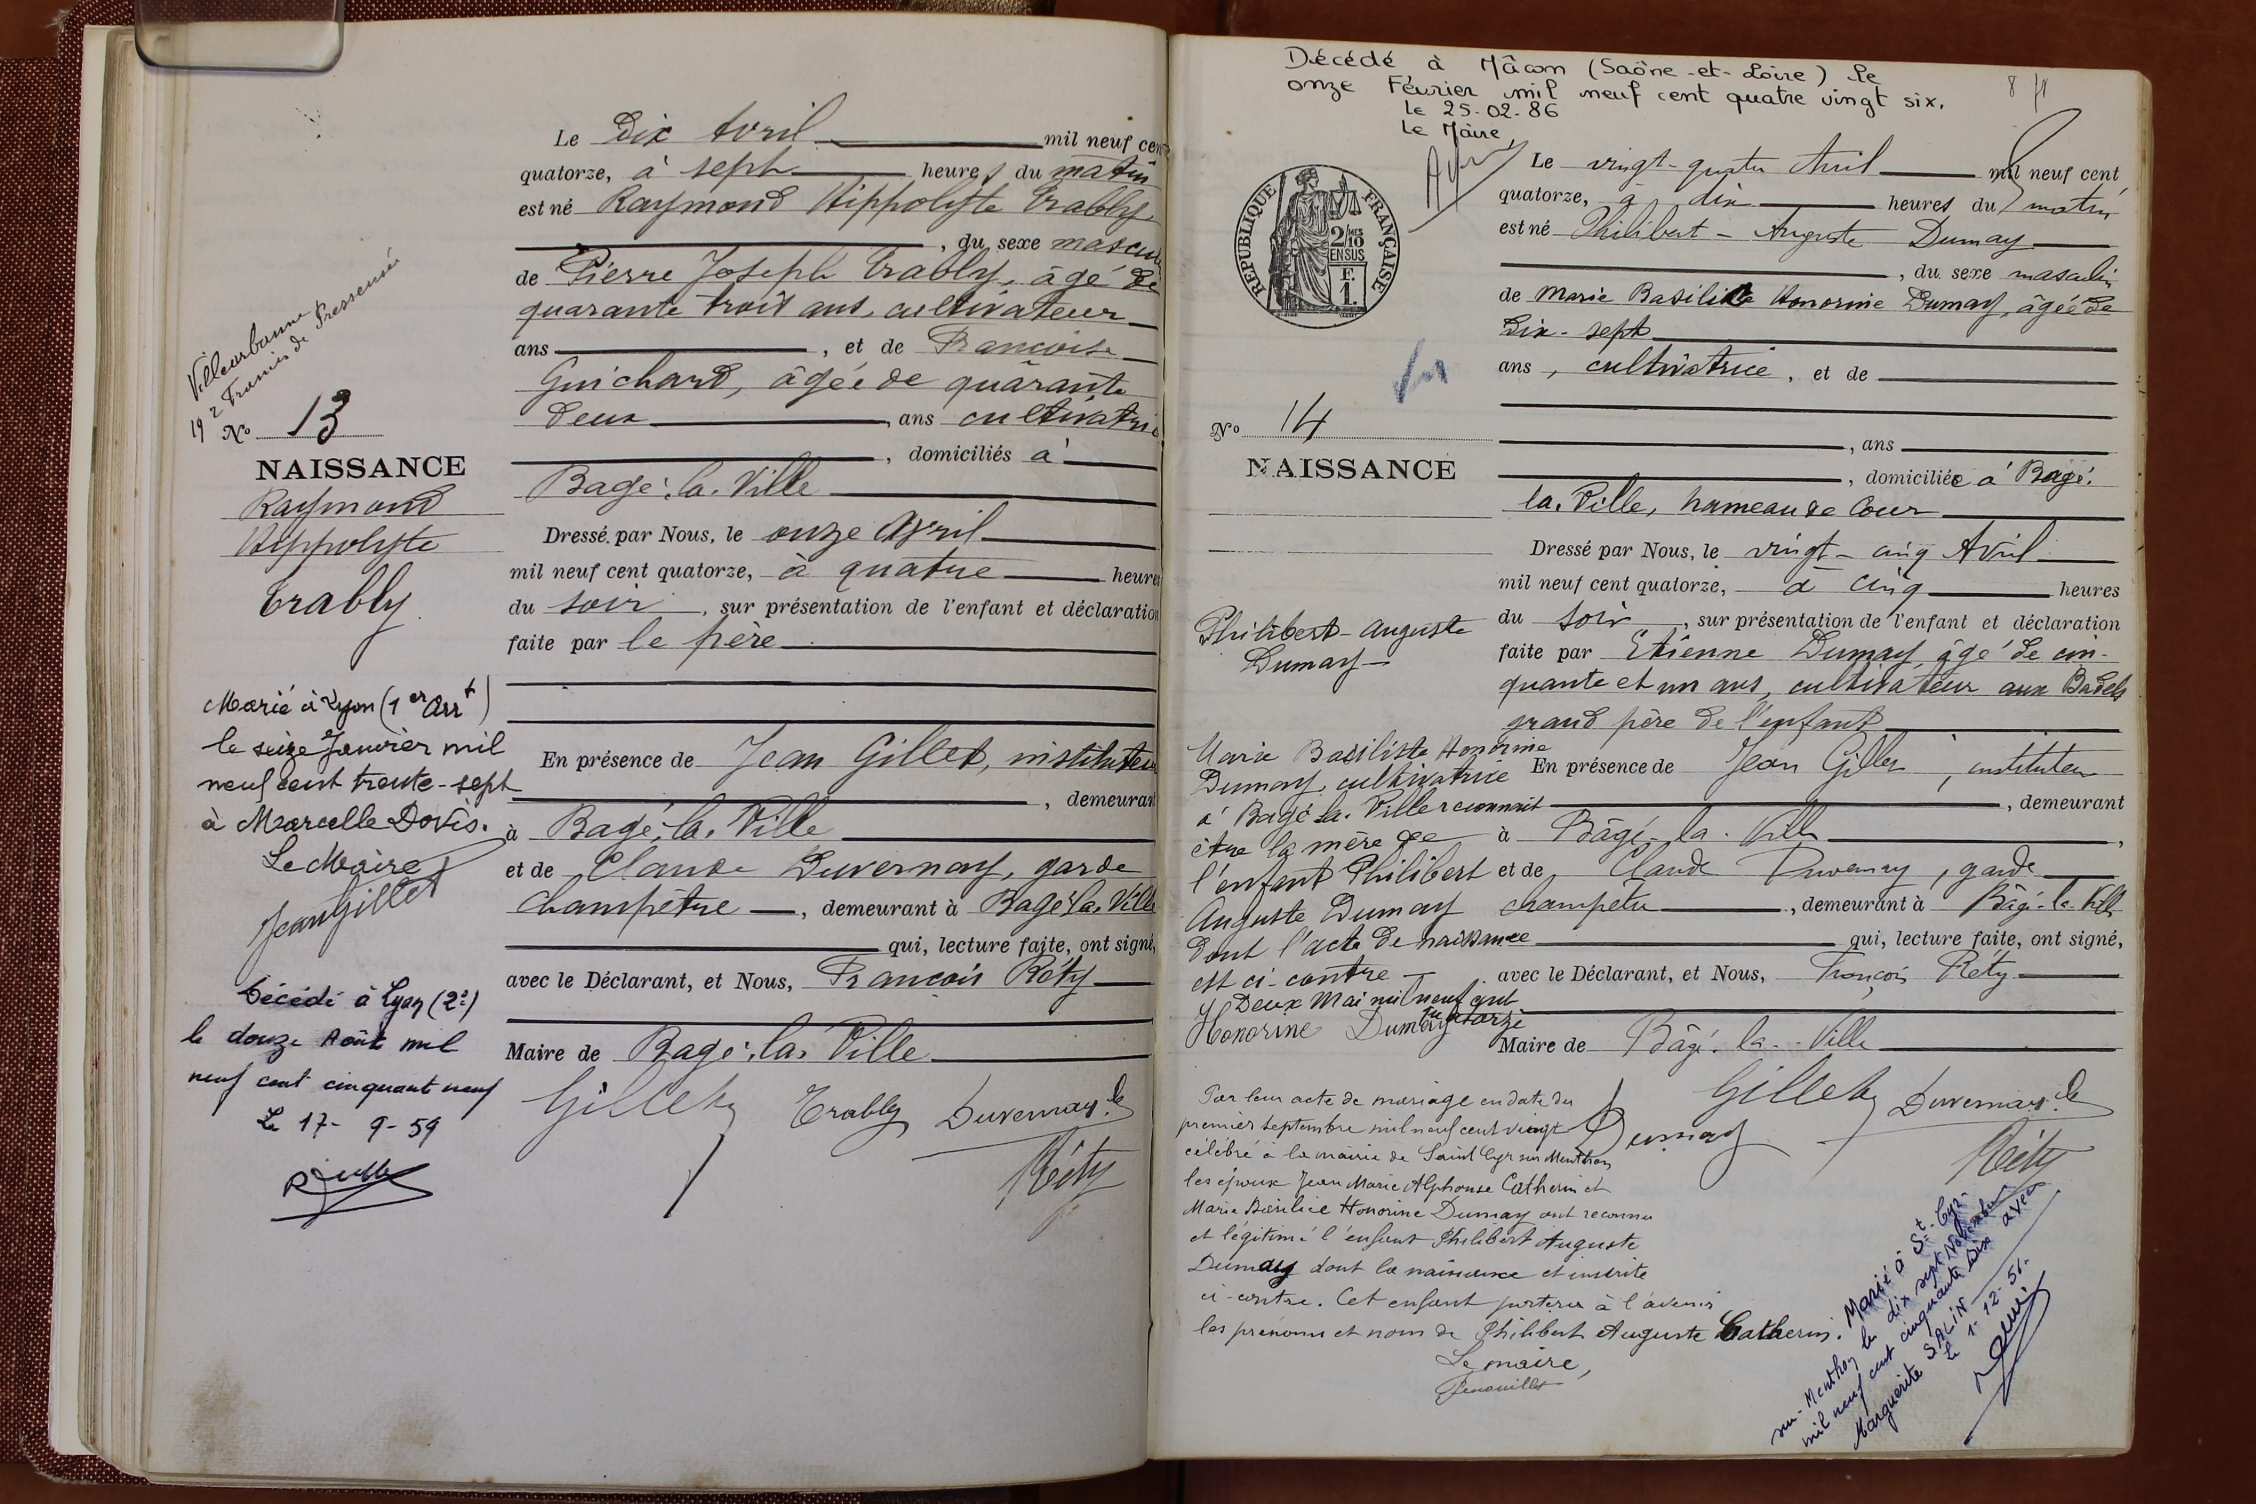 Villeurbanne
19 2 Francis de Pressensé
No 13
NAISSANCE
Raymond
Hippolyte
Trably
Marié à Lyon (1er Arrt)
le seize Janvier mil
neuf cent trente-sept
à Marcelle
Le Maire
Jean Gillet
Décédé à Lyon (2e)
le douze Août mil
neuf cent cinquant neuf
Le 17-9-59
Le Dix Avril mil neuf cent
quatorze, à sept heures du matin
est né Raymond Hippolyte Trably
, du sexe masculin
de Pierre Joseph Trably, âgé de
quarante trois ans, cultivateur
ans , et de Françoise
Guichard, âgée de quarante
deux , ans cultivatrice
, domiciliés à
Bagé-la-Ville
Dressé par Nous, le onze Avril
mil neuf cent quatorze, à quatre heures
du soir , sur présentation de l'enfant et déclaration
faite par le père
En présence de Jean Gillet, instituteur
, demeurant
à Bagé-la-Ville
et de Claude Duvernay, garde
champêtre , demeurant à Bagé-la-Ville
qui, lecture faite, ont signé,
avec le Déclarant, et Nous, François Réty
Maire de Bagé-la-Ville
Gillet Trably Duvernay Cle
Réty
Décédé à Mâcon (Saône-et-Loire) le
onze Février mil neuf cent quatre vingt six.
le 25-02-86
Le Maire,
RÉPUBLIQUE FRANÇAISE
2/10MES
EN SUS
F.
1.
No 14
NAISSANCE
Philibert-Auguste
Dumay
Marie Basilisse Honorine
Dumay, cultivatrice
à Bagé-la-Ville reconnait
être la mère de
l'enfant Philibert
Auguste Dumay
dont l'acte de naissance
est ci-contre
Deux Mai mil neuf cent
quatorze
Honorine Dumay
Le vingt-quatre Avril mil neuf cent
quatorze, à dix heures du matin
est né Philibert-Auguste Dumay
, du sexe masculin
de Marie Basilisse Honorine Dumay, âgée de
Dix-sept
ans, cultivatrice, et de
, ans
, domiciliée à Bagé-
la-Ville, hameau de Cour
Dressé par Nous, le vingt-cinq Avril
mil neuf cent quatorze, à cinq heures
du soir , sur présentation de l'enfant et déclaration
faite par Etienne Dumay, âgé de cin-
quante et un ans, cultivateur aux Badels
grand père de l'enfant
En présence de Jean Gillet, instituteur
, demeurant
à Bâgé-la-Ville
et de Claude Duvernay, garde
champêtre , demeurant à Bâgé-la-Ville
qui, lecture faite, ont signé,
avec le Déclarant, et Nous, François Réty
Maire de Bâgé-la-Ville
Gillet Duvernay Cle
Dumay
Réty
Par leur acte de mariage en date du
premier septembre mil neuf cent vingt
célébré à la mairie de Saint Cyr sur Menthon
les époux Jean Marie Alphonse Catherin et
Marie Basilice Honorine Dumay ont reconnu
et légitimé l'enfant Philibert Auguste
Dumay dont la naissance est inscrite
ci-contre. Cet enfant portera à l'avenir
les prénoms et nom de Philibert Auguste Catherin.
Le maire,
Marié à St-Cyr-
sur-Menthon le dix sept Novembre
mil neuf cent cinquante Dix avec
Marguerite SALIN
le 1-12-51-